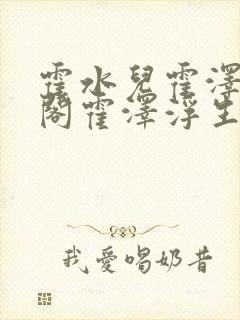 霍水兒霍澤
閣霍澤浮生
我愛喝奶昔